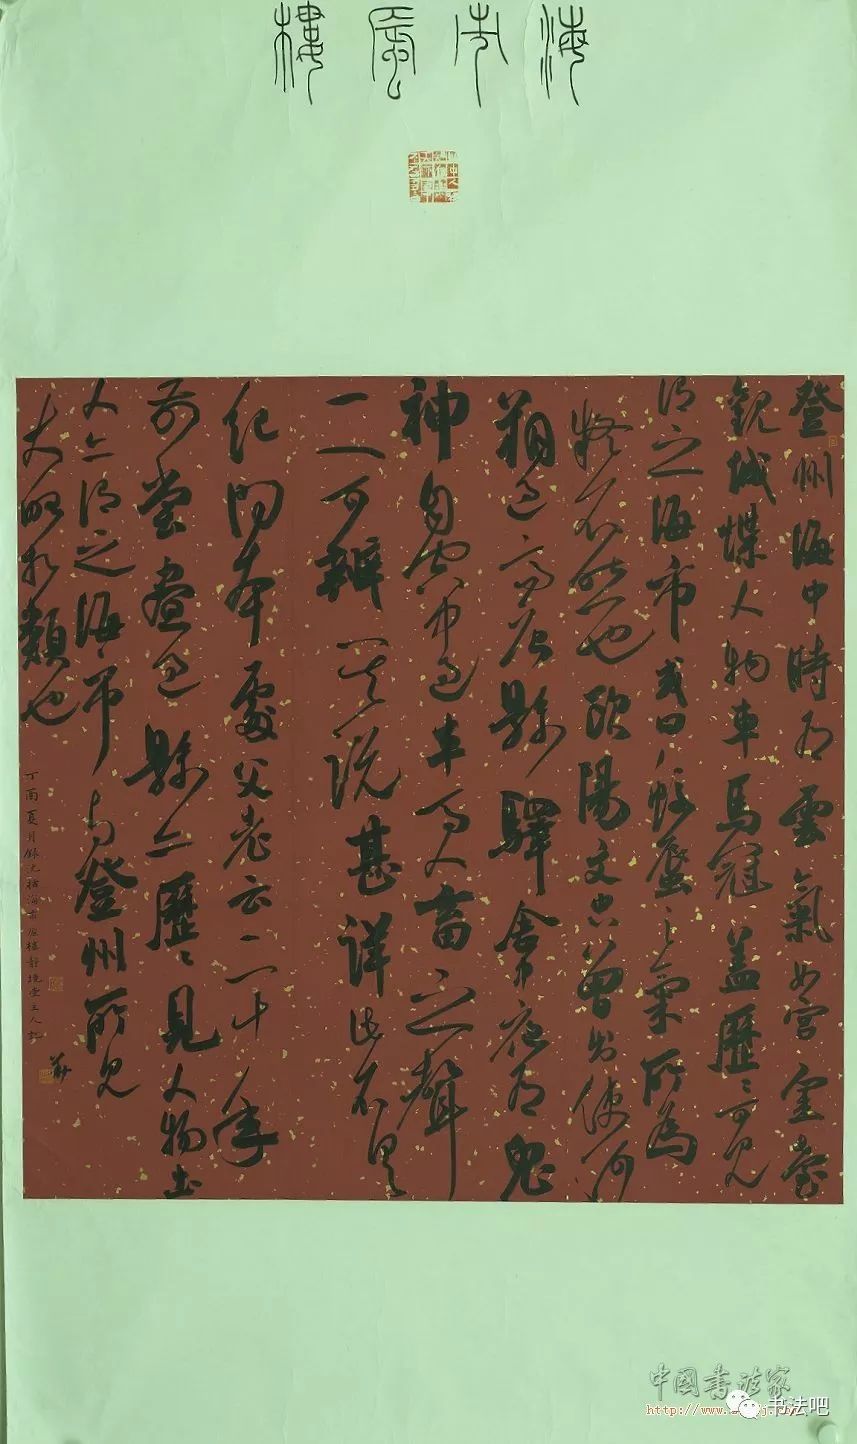 海市蜃樓
登州海中時有雲氣如宮室臺
觀城堞人物車馬冠蓋歷〻可見
謂之海市或曰蛟蜃之氣所為
疑不然也歐陽文忠曾出使河
朔過高唐縣驛舍中夜有鬼
神自空中過車馬人畜之聲
一一可辨其說甚詳此不具
紀問本處父老云二十年
前嘗晝過縣亦歷〻見人物土
人亦謂之海市與登州所見
大略相類也
丁酉夏月錄沈括海市蜃樓靜境堂主人記
中国書法家
书法吧